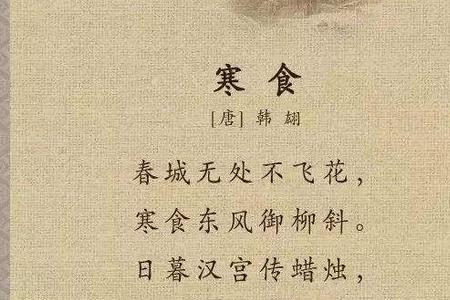 寒食
[唐] 韩翃
春城无处不飞花，
寒食东风御柳斜。
日暮汉宫传蜡烛，